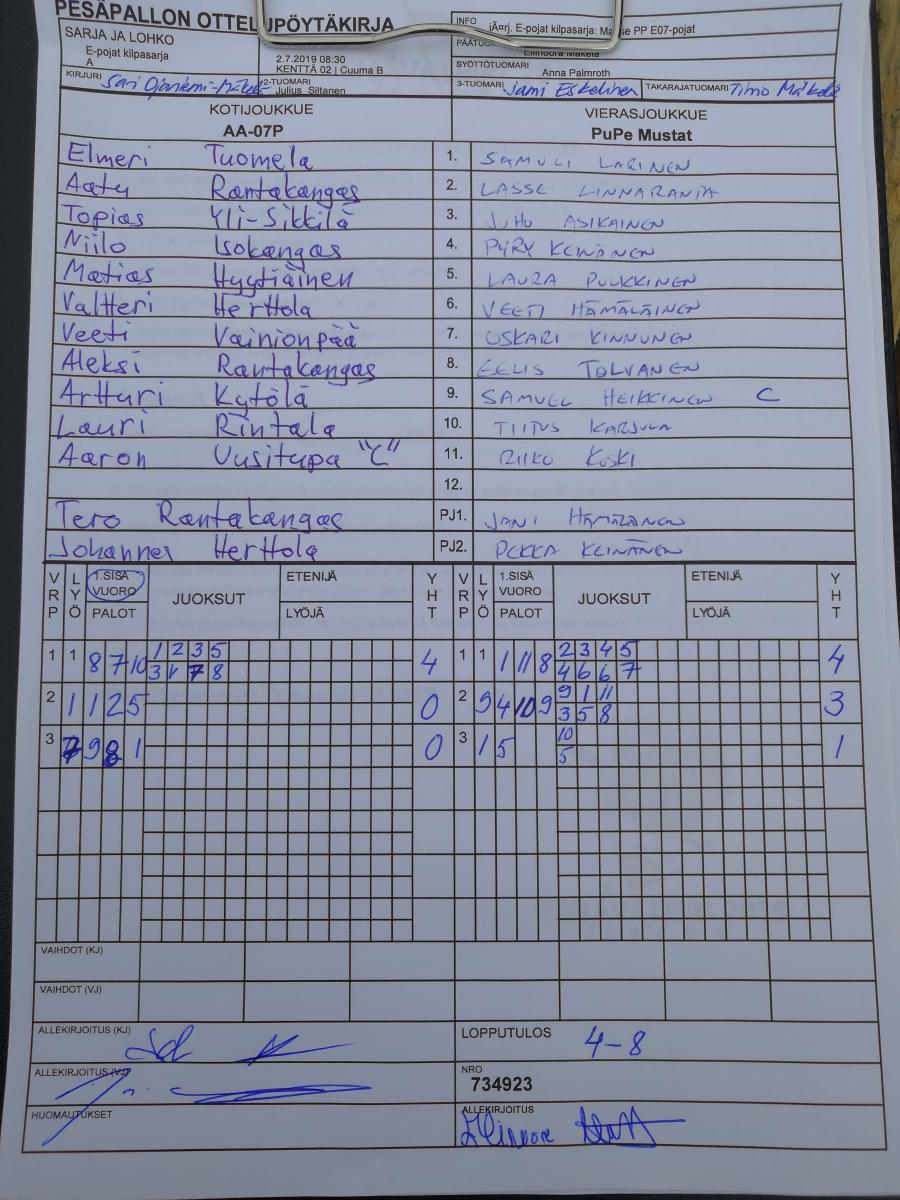 PESÄPALLON OTTELUPÖYTÄKIRJA
SARJA JA LOHKO
E-pojat kilpasarja
A
2.7.2019 08:30
KENTTÄ 02 | Cuuma B
INFO
E-pojat kilpasarja:
PP E07-pojat
SYÖTTÖTUOMARI
Anna Palmroth
KIRJURI
2-TUOMARI
Julius Siltanen
3-TUOMARI Jami Eskelinen
TAKARAJATUOMARI Timo Mäkelä
KOTIJOUKKUE
AA-07P
VIERASJOUKKUE
PuPe Mustat
Elmeri Tuomela 1. SAMULI LARINEN
Aatu Rantakangas 2. LASSE LINNARANTA
Topias Yli-Sikkilä 3. JUHO ASIKAINEN
Niilo Isokangas 4. PYRY KEINÄNEN
Matias Hyytiäinen 5. LAURA PULKKINEN
Valtteri Herttola 6. VEETI HÄMÄLÄINEN
Veeti Vainionpää 7. OSKARI KINNUNEN
Aleksi Rantakangas 8. EELIS TOLVANEN
Artturi Kytölä 9. SAMUEL HEIKKINEN C
Lauri Rintala 10. TIITUS KARJULA
Aaron Uusitupa "C" 11. RIIKO KOSKI
12.
Tero Rantakangas PJ1. JANI HÄMÄLÄINEN
Johannes Herttola PJ2. PEKKA KEINÄNEN
VRP LYÖ 1.SISÄ VUORO PALOT JUOKSUT ETENIJÄ LYÖJÄ YHT VRP LYÖ 1.SISÄ VUORO PALOT JUOKSUT ETENIJÄ LYÖJÄ YHT
1 1 8 7 10 1 2 3 5 4 1 1 1 11 8 2 3 4 5 4
3 4 7 8 4 6 6 7
2 1 1 2 5 0 2 9 4 10 9 9 1 11 3
3 5 8
3 7 9 8 1 0 3 1 5 10 1
5
VAIHDOT (KJ)
VAIHDOT (VJ)
ALLEKIRJOITUS (KJ)
LOPPUTULOS 4-8
ALLEKIRJOITUS (VJ)
NRO
734923
HUOMAUTUKSET
ALLEKIRJOITUS